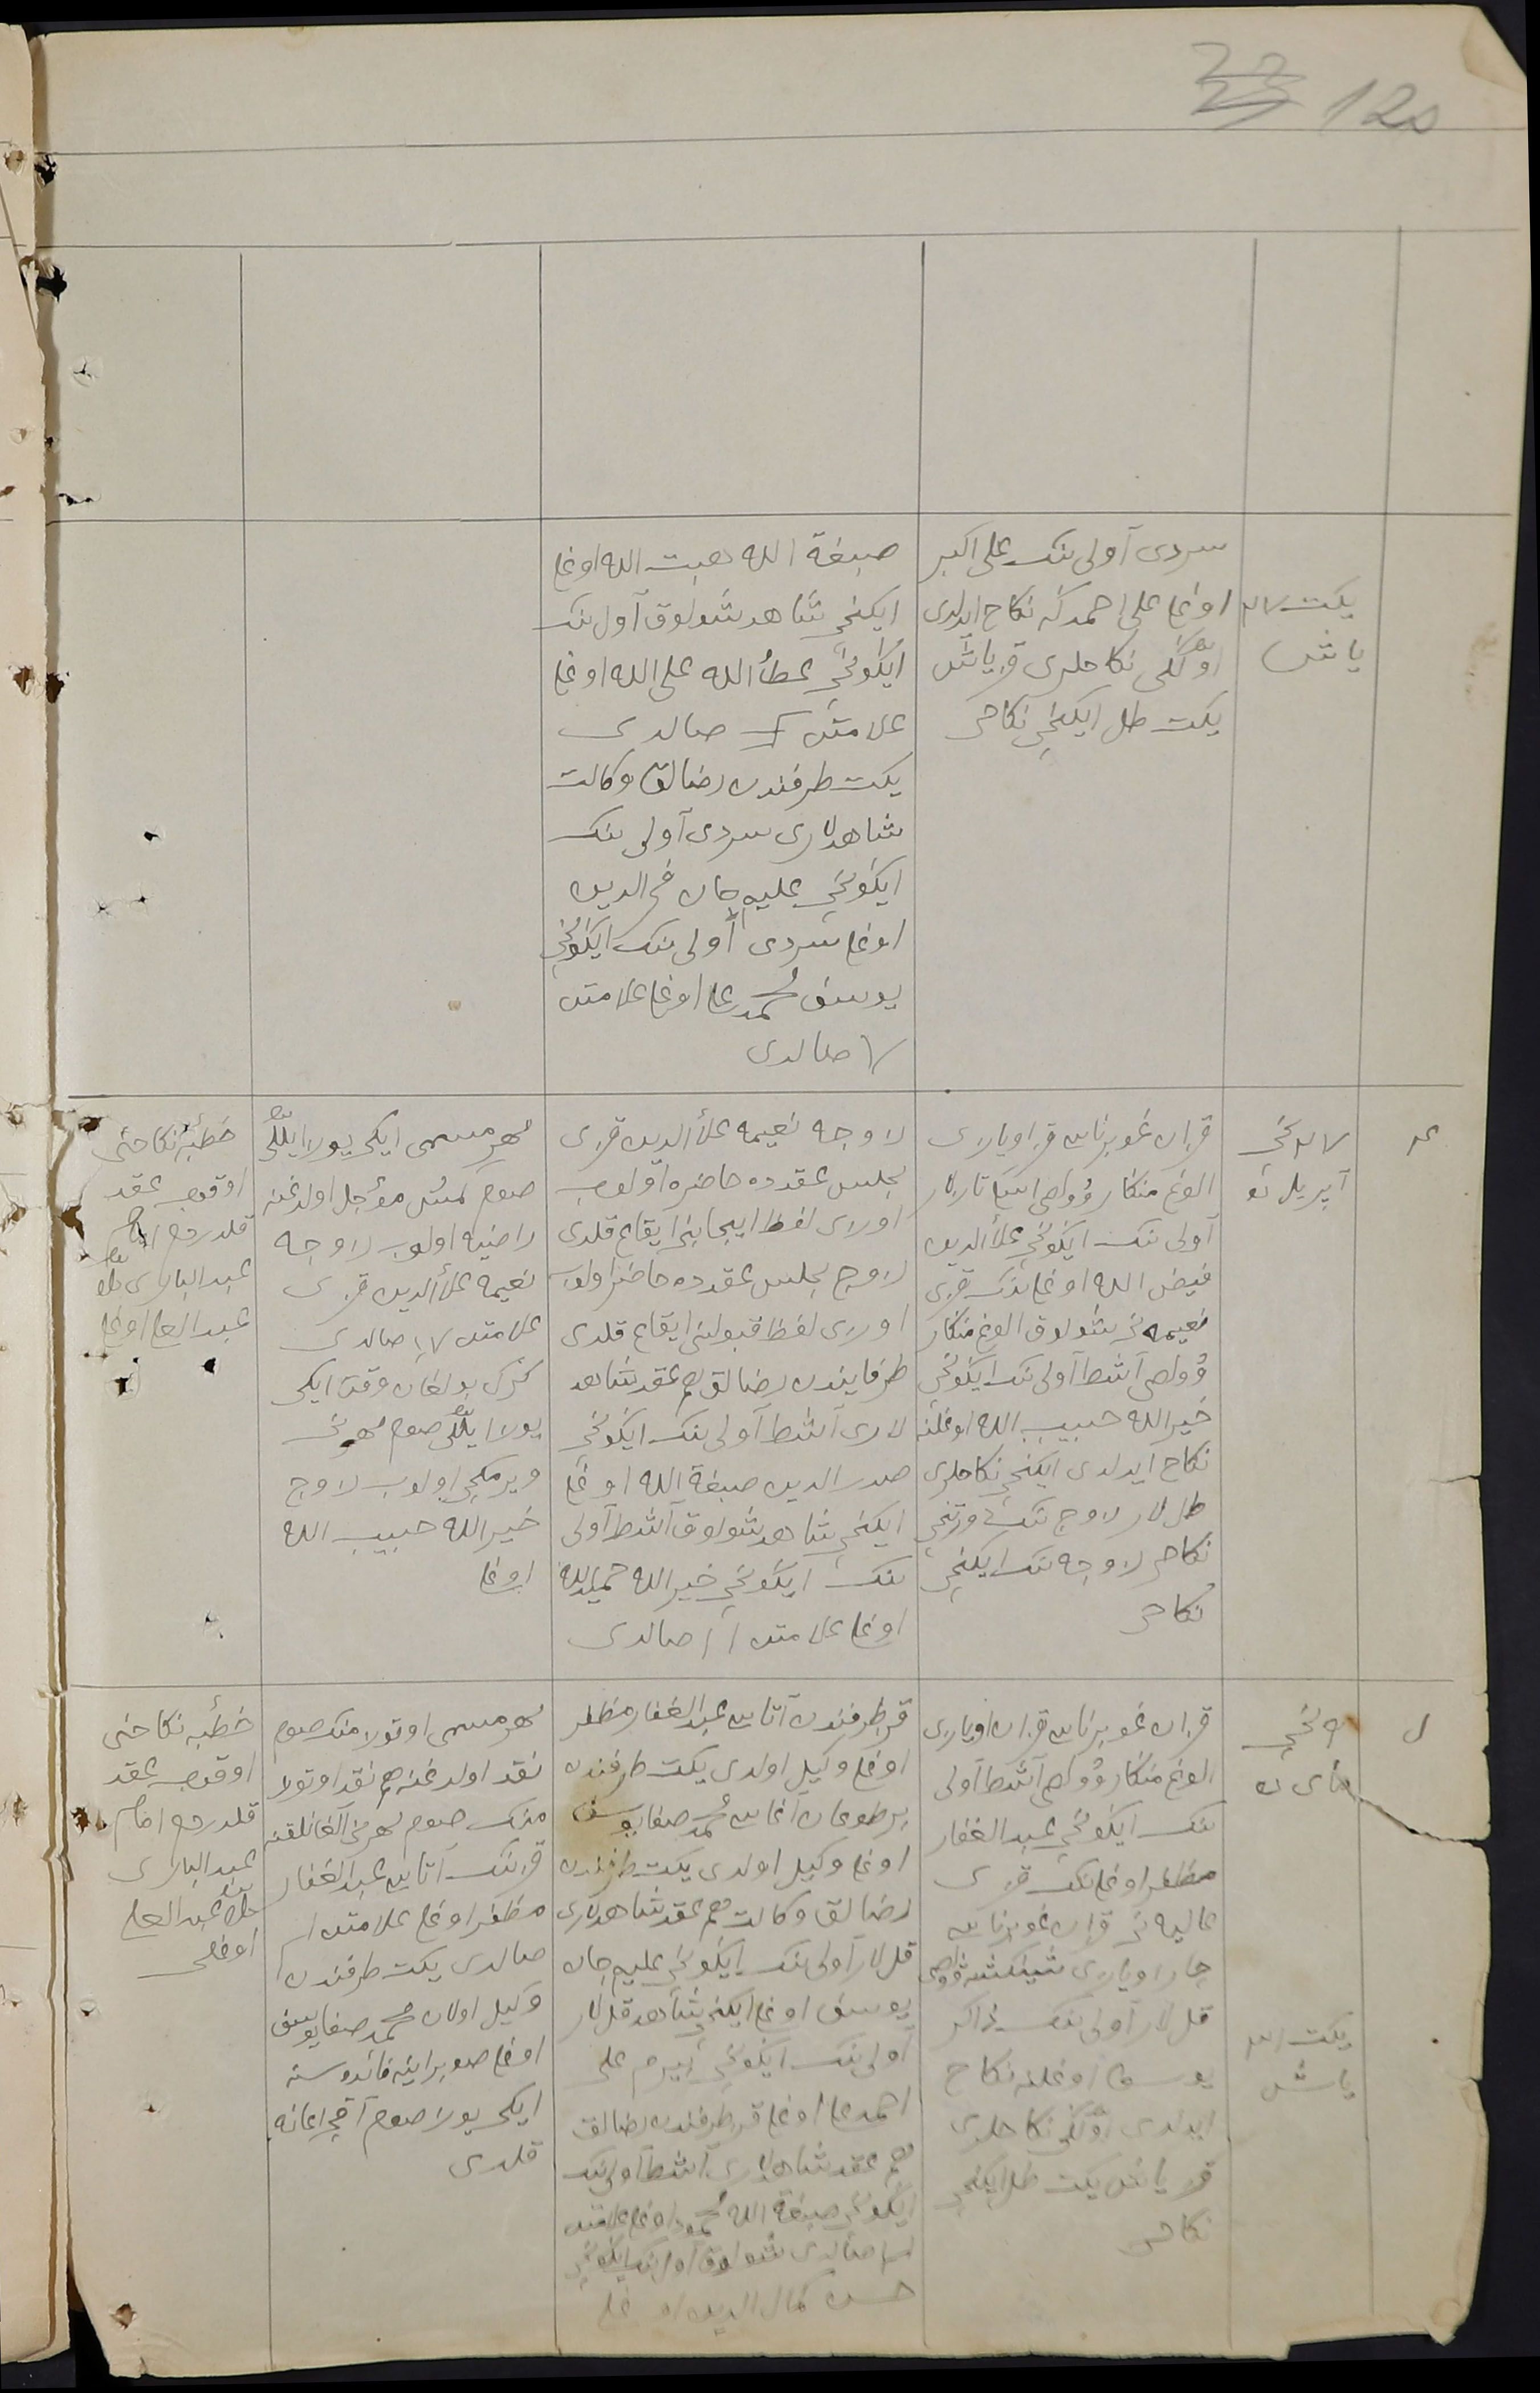 120
یکت
یاش
سردی آولی ننک علی اکبر
اوغلی علی احمدکه نکاح ایدلدی
اوّلگی نکاحلری قز یاش
یکت طل ایکنچی نکاحی
صبغة الله هبت الله اوغلی
ایکنچی شاهد شولوق آول ننک
ایگونچی عطأ الله علی الله اوغلی
علامتن صالدی
یکت طرفندن رضالق وکالت
شاهدلاری سردی آولی ننک
ایگونچی علیم جان فخرالدین
اوغلی سردی آولی ننک ایگونچی
یوسف محمد علی اوغلی علامتن
صالدی
نچی
آپریل ده
قزان غوبرناس
آولی ننک ایگونچی علأ الدین
فیض الله اوغلی ننک قزی
نعیمه نی شولوق الوغ منکار
آشط آولی ننک ایگونچی
خیرالله حبیب الله اوغلنه
نکاح ایدلدی ایکنچی نکاحلری
طل لار زوج ننک دورتنچی
نکاحی زوجه ننک ایکنچی
نکاحی
زوجه نعیمه علأ الدین قزی
مجلس عقدده حاضره اولوب
اوزی لفظ ایجابنی ایقاع قلدی
زوج مجلس عقدده حاضر اولوب
اوزی لفظ قبولنی ایقاع قلدی
طرفایندن رضالق هم عقد شاهد
لاری آشط آولی ننک ایگونچی
صدر الدین صبغة الله اوغلی
ایکنچی شاهد شولوق آشط آولی
ننک ایگونچی خیرالله حمیدالله
اوغلی علامتن صالدی
مهر مسمی ایکی یوز ایللی
صوم مؤجل اولدغنه
راضیه اولوب زوجه
نعیمه علأ الدین قزی
علامتن صالدی
کرک بولغان وقت ایکی
یوز ایللی صوم مهرنی
ویرمکچی اولوب زوج
خیرالله حبیب الله
اوغلی
خطبۀ نکاحنی
اوقوب عقد
قلدردم امام
عبد الباری
عبد العلی اوغلی
نچی
مای ده
یکت
یاش
قزان غوبرناس قزان اویازی
الوغ منکار آشط آولی
ننک ایگونچی عبد الغفار
مظفر اوغلی ننک قزی
عالیه نی قزان غوبرناس
قل لار آولی ننک ذاکر
یوسف اوغلنه نکاح
ایدلدی اوّلگی نکاحلری
قز یاش یکت طل ایکنچی
نکاحی
قز طرفندن آتاسی عبد الغفار مظفر
اوغلی وکیل اولدی یکت طرفندن
بر طوغان آغاسی محمد صفا یوسف
اوغلی وکیل اولدی یکت طرفندن
رضالق وکالت هم عقد شاهدلاری
قل لار آولی ننک ایگونچی علیم جان
یوسف اوغلی ایکنچی شاهد قل لار
آولی ننک ایگونچی بیرم علی
احمد علی اوغلی قز طرفندن رضالق
هم عقد شاهدلاری آشط آولی ننک
ایگونچی صبغة الله محمود اوغلی علامتن
صالدی شولوق آول ننک ایگونچی
حسن کمال الدین اوغلی
مهر مسمی اوتوز منک صوم
نقد اولدغنه هم نقد اوتوز
منک صوم مهرنی آلغانلقنه
قز ننک آتاسی عبد الغفار
مظفر اوغلی علامتن
صالدی یکت طرفندن
وکیل اولان محمد صفا یوسف
اوغلی
ایکی یوز صوم آقچه اعانه
قلدی
خطبۀ نکاحنی
اوقوب عقد
قلدردم امام
عبد الباری
عبد العلی
اوغلی